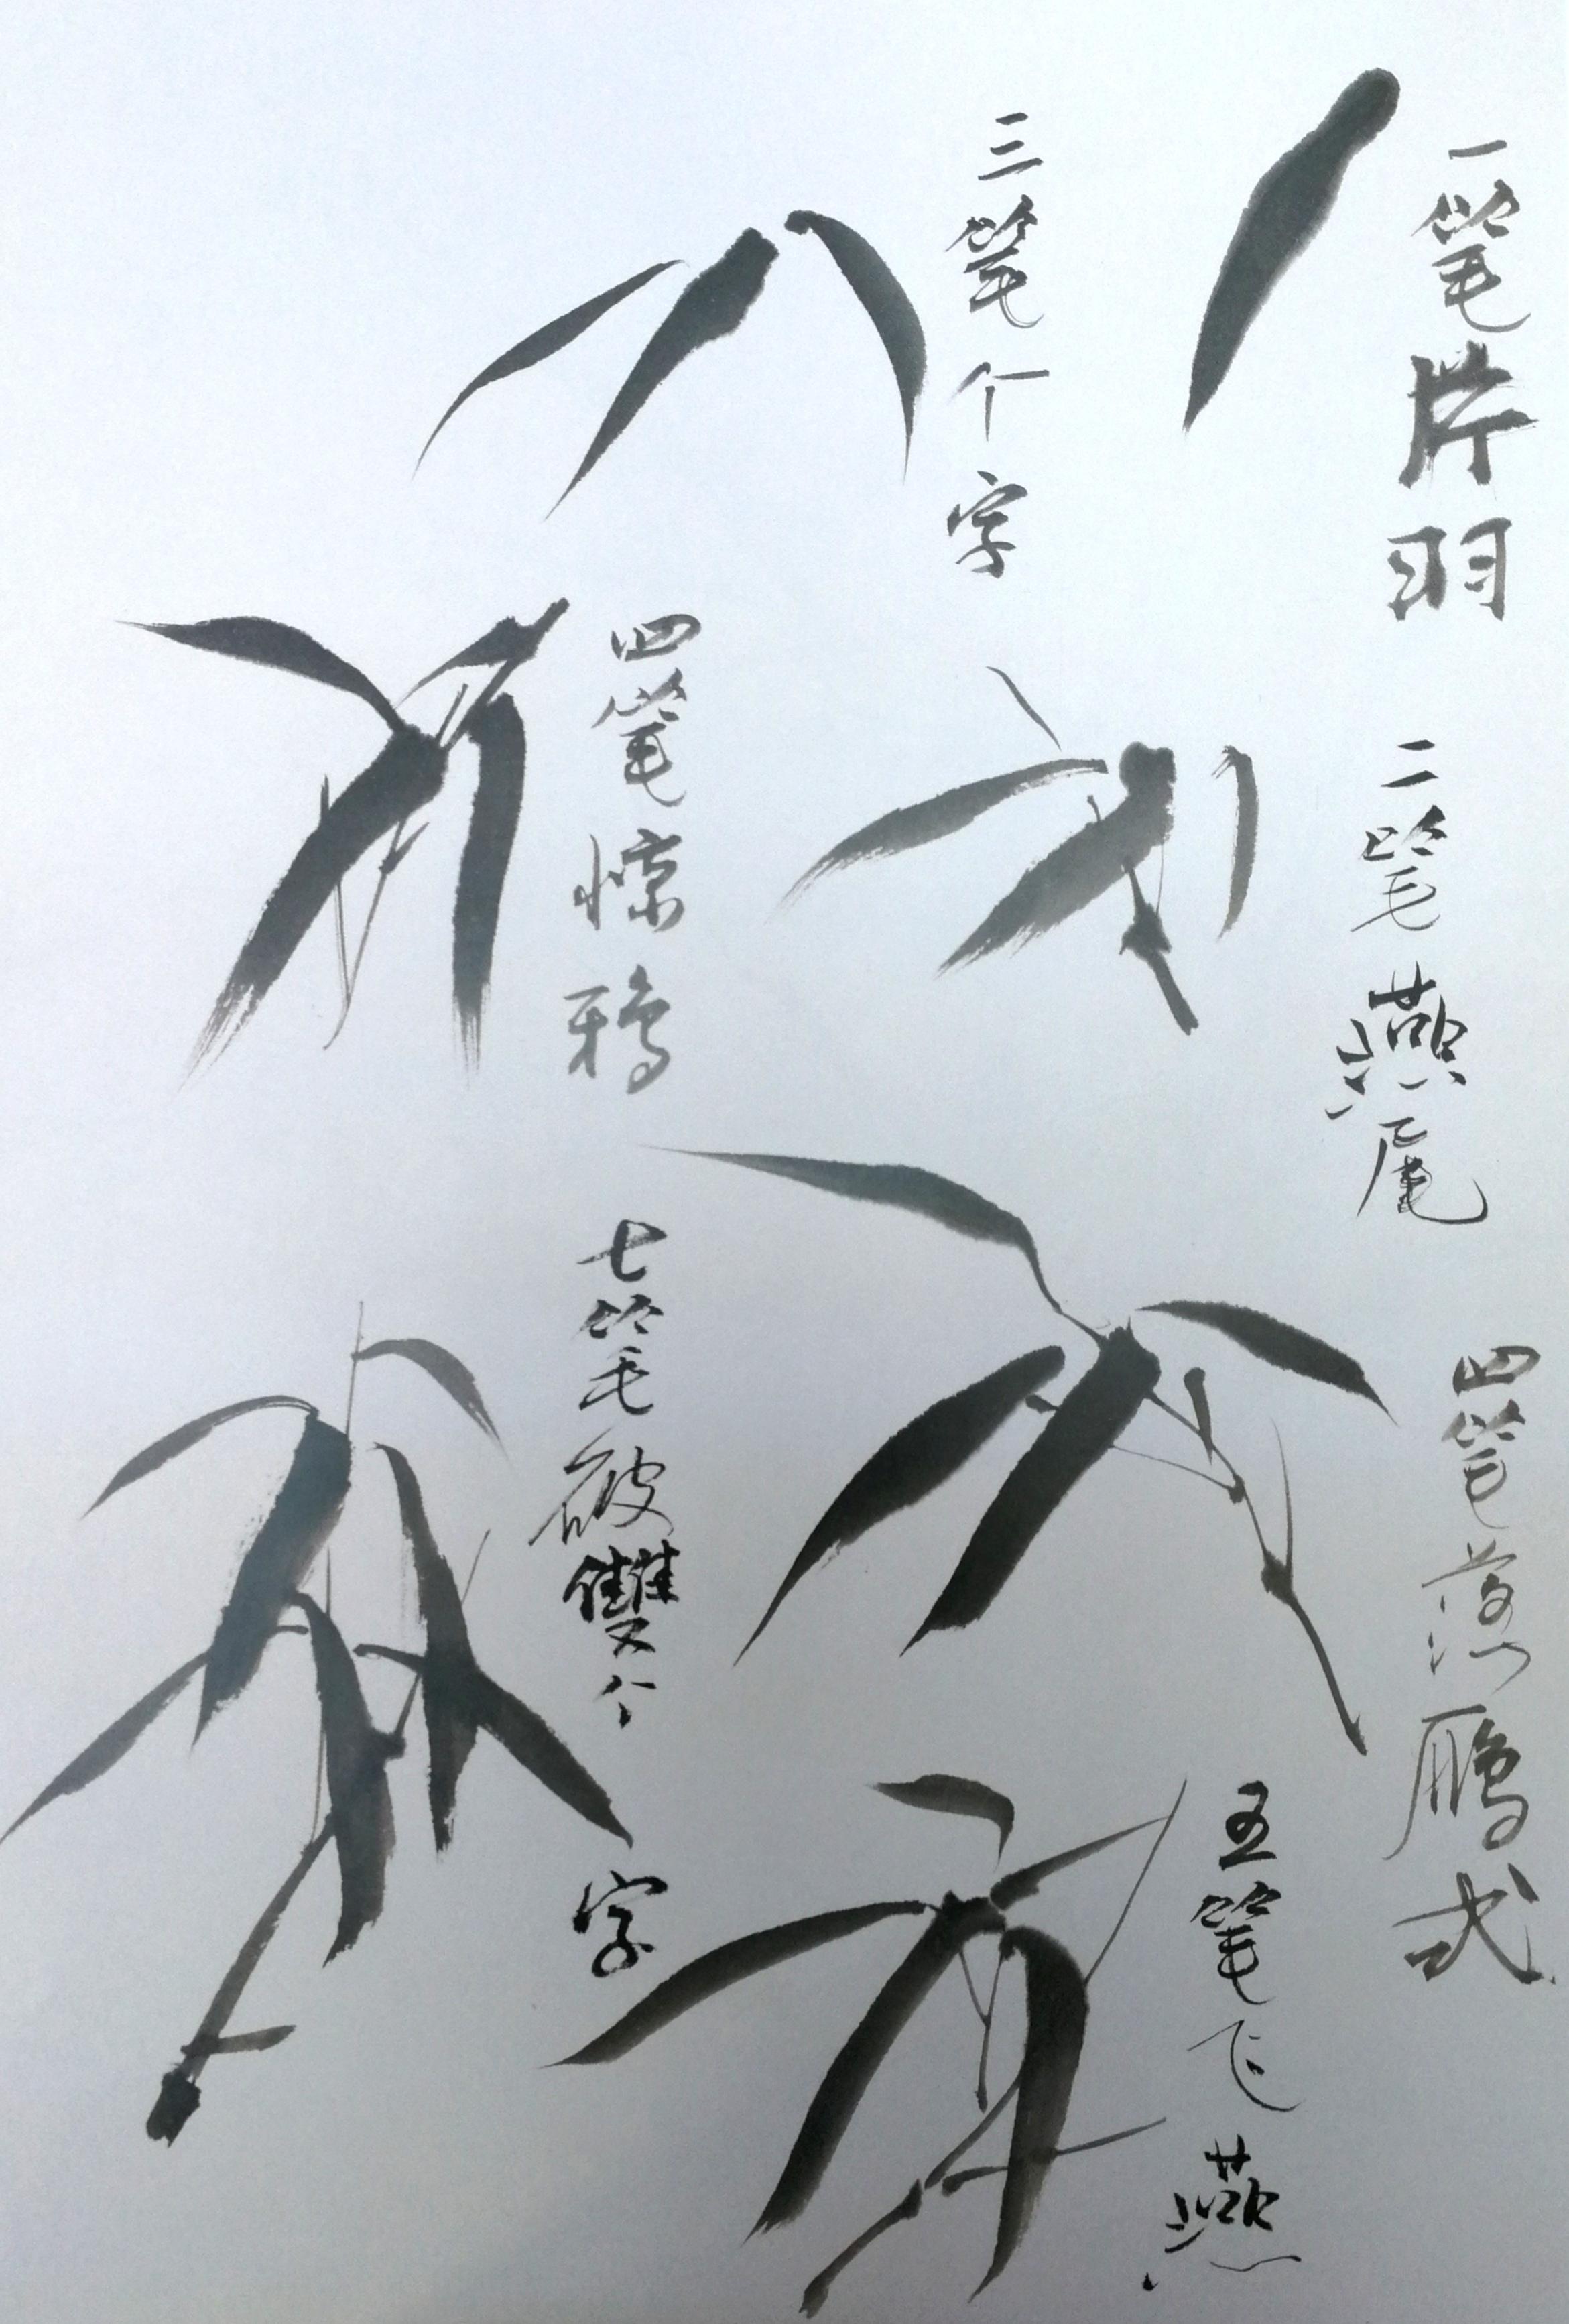 一笔片羽
二笔燕尾
三笔个字
四笔惊鸦
四笔落鴈式
五笔飞燕
七笔破雙个字